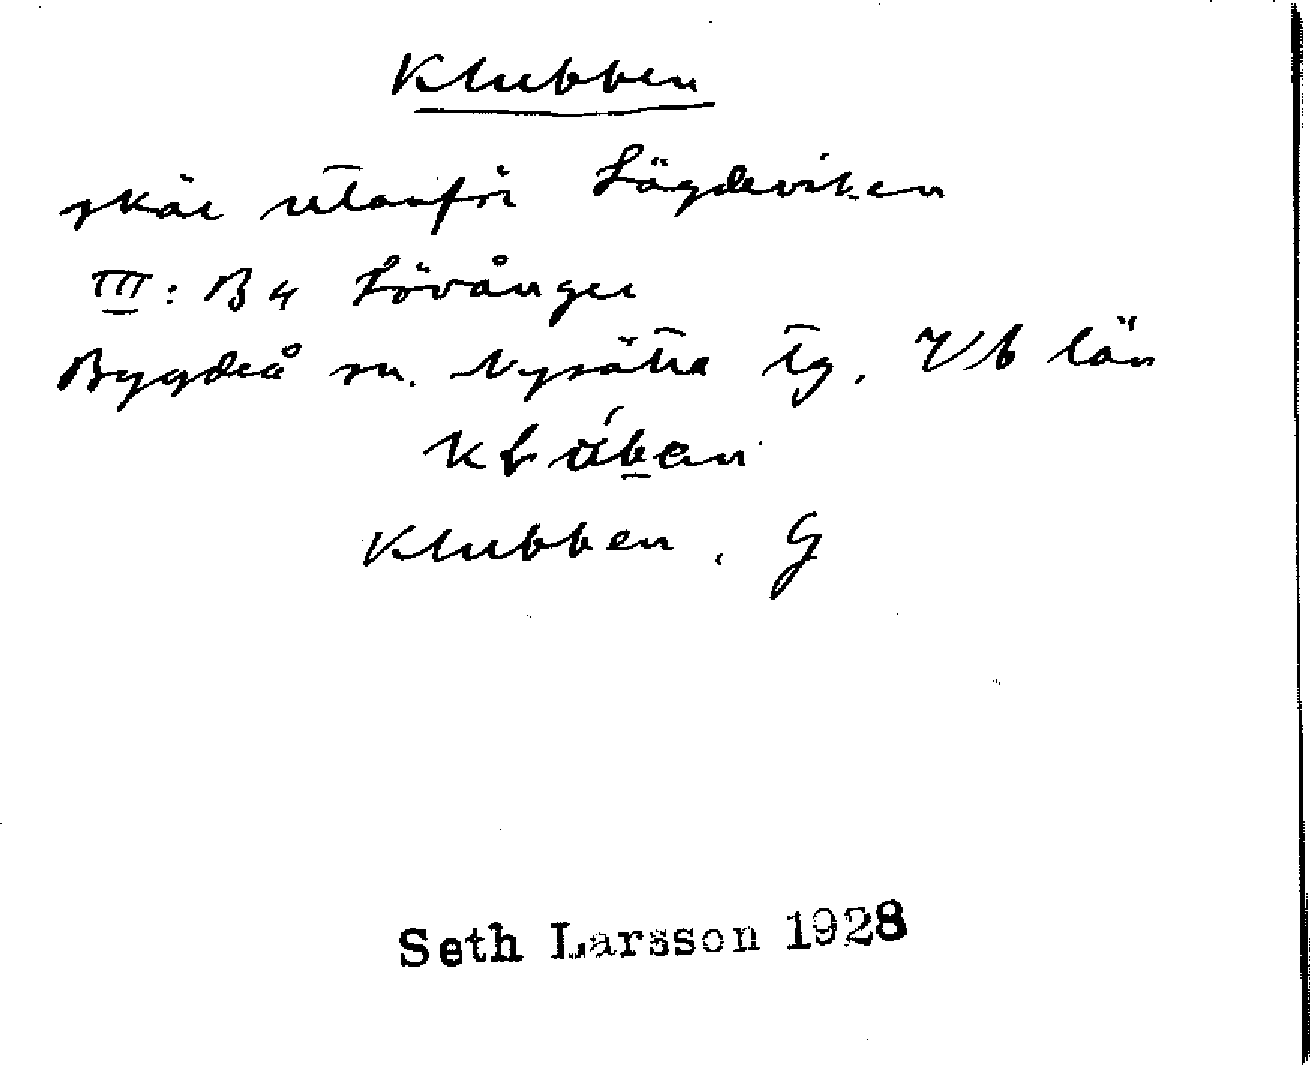 Klubben
skär utanför Lägdeviken
III: B 4 Lövånger
Bygdeå sn. Nysätra tg. Vb län
Klubben. G
Seth Larsson 1928